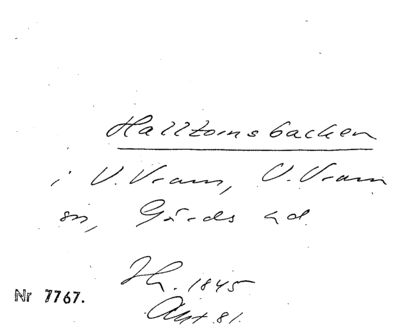 Halltornsbacken
i V. Vram, V. Vram
sn, Gärds hd.
Ih. 1845
Akt 81.
Nr 7767.